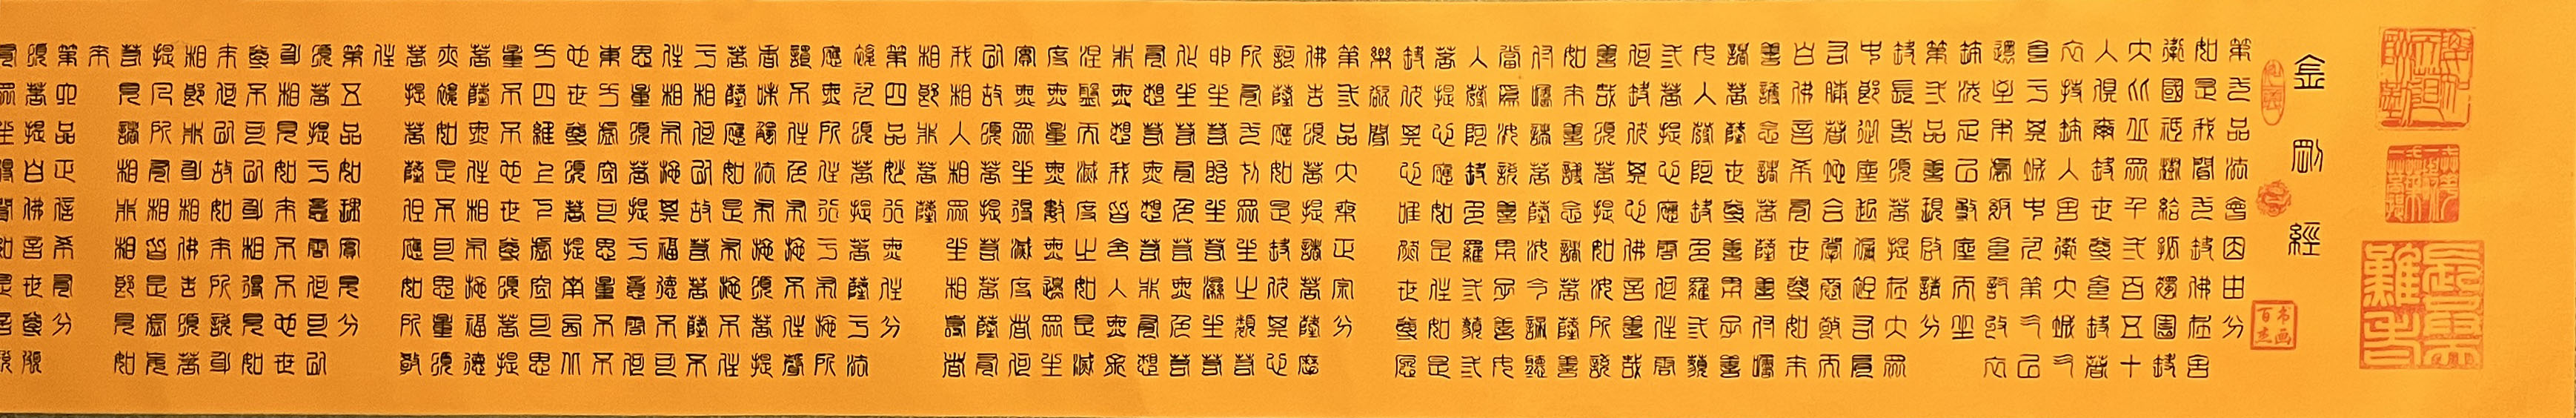 金剛經
第弌品法會因由分
如是我聞弌時佛在舍
衛國祇樹給孤獨園與
大比丘眾千弍百五十
人俱爾時世尊食時著
衣持缽入舍衛大城乞
食于其城中次第乞已
還至本處飯食訖收衣
缽洗足已敷座而坐
第弍品善現啟請分
時長老須菩提在大眾
中即從座起偏袒右肩
右膝著地合掌恭敬而
白佛言希有世尊如來
善護念諸菩薩善付囑
諸菩薩世尊善男子善
女人發阿耨多羅弎藐
弎菩提心應云何住云
何降伏其心佛言善哉
善哉須菩提如汝所說
如來善護念諸菩薩善
付囑諸菩薩汝今諦聽
當為汝說善男子善女
人發阿耨多羅弎藐弎
菩提心應如是住如是
降伏其心唯然世尊願
樂欲聞
第弎品大乘正宗分
佛告須菩提諸菩薩摩
訶薩應如是降伏其心
所有弌切眾生之類若
卵生若胎生若濕生若
化生若有色若無色若
有想若無想若非有想
非無想我皆令入無餘
涅槃而滅度之如是滅
度無量無數無邊眾生
實無眾生得滅度者何
以故須菩提若菩薩有
我相人相眾生相壽者
相即非菩薩
第四品妙行無住分
復次須菩提菩薩于法
應無所住行于布施所
謂不住色布施不住聲
香味觸法布施須菩提
菩薩應如是布施不住
于相何以故若菩薩不
住相布施其福德不可
思量須菩提于意云何
東方虛空可思量不不
也世尊須菩提南西北
方四維上下虛空可思
量不不也世尊須菩提
菩薩無住相布施福德
亦復如是不可思量須
菩提菩薩但應如所教
住
第五品如理實見分
須菩提于意云何可以
身相見如來不不也世
尊不可以身相得見如
來何以故如來所說身
相即非身相佛告須菩
提凡所有相皆是虛妄
若見諸相非相即見如
來
第六品正信希有分
須菩提白佛言世尊頗
有眾生得聞如是言說
书画百杰